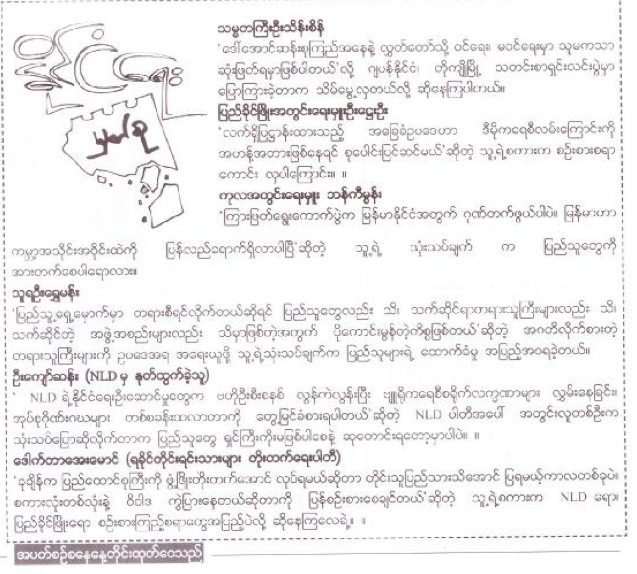 နိုင်ငံရေး
မှတ်စု
သမ္မတကြီးဦးသိန်းစိန်
‘ဒေါ်အောင်ဆန်းစုကြည်အနေနဲ့ လွှတ်တော်သို့ ဝင်ရေး၊ မဝင်ရေးမှာ သူမကသာ
ဆုံးဖြတ်ရမှာဖြစ်ပါတယ်’လို့ ဂျပန်နိုင်ငံ၊ တိုကျိုမြို့ သတင်းစာရှင်းလင်းပွဲမှာ
ပြောကြားခဲ့တာက သိမ်မွေ့လှတယ်လို့ ဆိုနေကြပါတယ်။
ပြည်ခိုင်ဖြိုးအတွင်းရေးမှူးဦးဌေးဦး
‘လက်ရှိပြဋ္ဌာန်းထားသည့် အခြေခံဥပဒေဟာ ဒီမိုကရေစီလမ်းကြောင်းကို
အဟန့်အတားဖြစ်နေရင် စုပေါင်းပြင်ဆင်မယ်’ဆိုတဲ့ သူ့ရဲ့စကားက စဉ်းစားစရာ
ကောင်း လှပါကြောင်း။ ။
ကုလအတွင်းရေးမှူး ဘန်ကီမွန်း
‘ကြားဖြတ်ရွေးကောက်ပွဲက မြန်မာနိုင်ငံအတွက် ဂုဏ်တက်ဖွယ်ပါပဲ။ မြန်မာဟာ
ကမ္ဘာ့အသိုင်းအဝိုင်းထဲကို ပြန်လည်ရောက်ရှိလာပါပြီ’ဆိုတဲ့ သူ့ရဲ့ သုံးသပ်ချက် က ပြည်သူတွေကို
အားတက်စေပါရောလား။
သူရဦးရွှေမန်း
‘ပြည်သူ့ရှေ့မှောက်မှာ တရားစီရင်လိုက်တယ်ဆိုရင် ပြည်သူတွေလည်း သိ၊ သက်ဆိုင်ရာတရားသူကြီးများလည်း သိ၊
သက်ဆိုင်တဲ့ အဖွဲ့အစည်းများလည်း သိမှာဖြစ်တဲ့အတွက် ပိုကောင်းမွန်တဲ့ကိစ္စဖြစ်တယ်’ဆိုတဲ့ အဂတိလိုက်စားတဲ့
တရားသူကြီးများကို ဥပဒေအရ အရေးယူဖို့ သူ့ရဲ့သုံးသပ်ချက်က ပြည်သူများရဲ့ ထောက်ခံမှု အပြည့်အဝရခဲ့တယ်။
ဦးကျော်ဆန်း (NLD မှ နုတ်ထွက်ခဲ့သူ)
‘ NLD ရဲ့နိုင်ငံရေးဦးဆောင်မှုတွေက ဗဟိုဦးစီးစနစ် လွန်ကဲလွန်းပြီး ဗျူရိုကရေစီစရိုက်လက္ခဏာများ လွှမ်းနေခြင်း၊
အုပ်စုဂိုဏ်းဂဏများ တစ်ခန်းထလာတာကို တွေ့မြင်ခံစားရပါတယ်’ဆိုတဲ့ NLD ပါတီအပေါ် အတွင်းလူတစ်ဦးက
သုံးသပ်ပြောဆိုလိုက်တာက ပြည်သူတွေ ရှင်ကြီးကိုးမဖြစ်ပါစေနဲ့ ဆုတောင်းရတော့မှာပါပဲ။ ။
ဒေါက်တာအေးမောင် (ရခိုင်တိုင်းရင်းသားများ တိုးတက်ရေးပါတီ)
‘ခုချိန်က ပြည်ထောင်စုကြီးကို ဖွံ့ဖြိုးတိုးတက်အောင် လုပ်ရမယ်ဆိုတာ တိုင်းသူပြည်သားသိအောင် ပြရမယ့်ကာလတစ်ခုပဲ။
စကားလုံးတစ်လုံးနဲ့ ဝိဝါဒ ကွဲပြားနေတယ်ဆိုတာကို ပြန်စဉ်းစားစေချင်တယ်’ဆိုတဲ့ သူ့ရဲ့စကားက NLD ရော၊
ပြည်ခိုင်ဖြိုးရော စဉ်းစားကြည့်စရာတွေအပြည့်ပဲလို့ ဆိုနေကြလေရဲ့။ ။
အပတ်စဉ်စနေနေ့တိုင်းထုတ်ဝေသည်